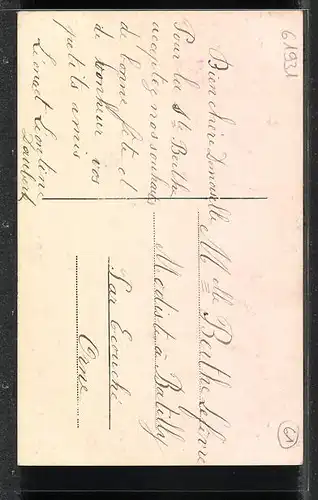 61931
Bien chère Demoiselle
Pour la Ste Berthe
acceptez nos souhaits
de bonne fête et
de bonheur vos
petits amis
Lionet Léontine
Daubert
Melle Berthe Lefèvre
Modiste à Batilly
Par Écouché
Orne
61